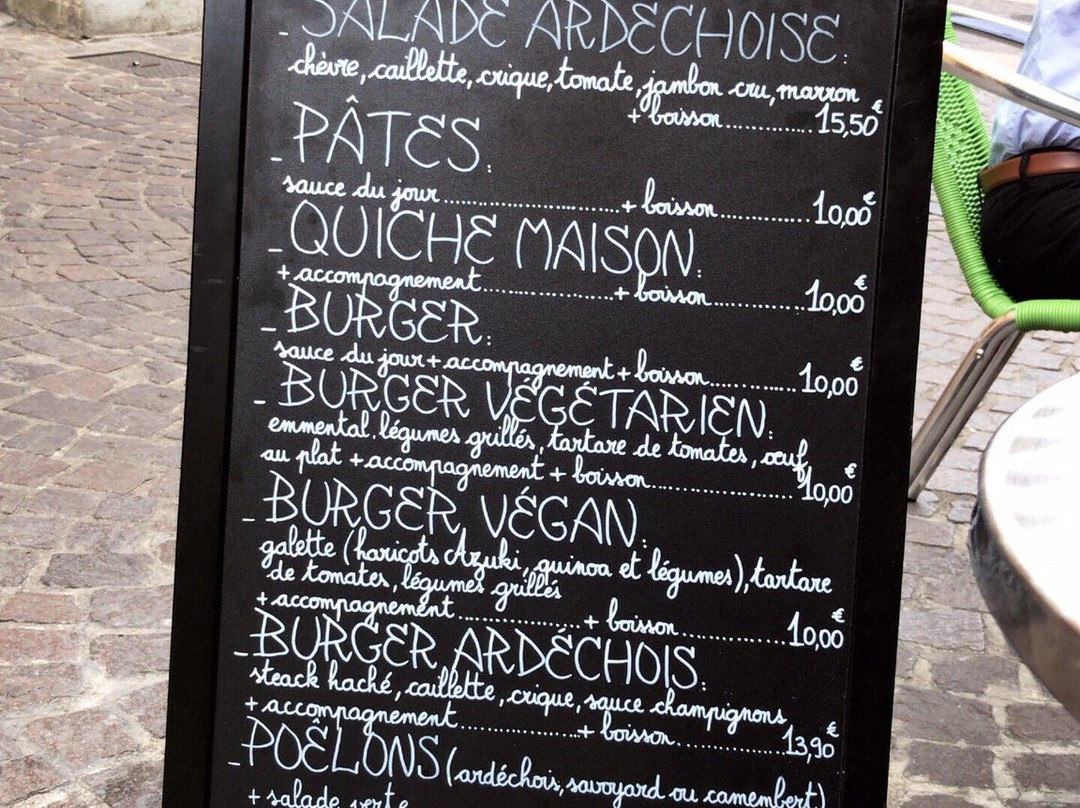 - SALADE ARDÉCHOISE:
chèvre, caillette, crique, tomate, jambon cru, marron
+ boisson.............. 15,50€
- PÂTES:
sauce du jour..............................+ boisson.............. 10,00€
- QUICHE MAISON:
+ accompagnement......................+ boisson.............. 10,00€
- BURGER:
sauce du jour + accompagnement + boisson.............. 10,00€
- BURGER VÉGÉTARIEN:
emmental. légumes grillés, tartare de tomates, oeuf
au plat + accompagnement + boisson...................... 10,00€
- BURGER VÉGAN:
galette (haricots Azuki, quinoa et légumes), tartare
de tomates, légumes grillés
+ accompagnement...................+ boisson................ 10,00€
- BURGER ARDÉCHOIS:
steack haché, caillette, crique, sauce champignons
+ accompagnement..................+ boisson................ 13,90€
- POÊLONS (ardéchois, savoyard ou camembert)
+ salade verte